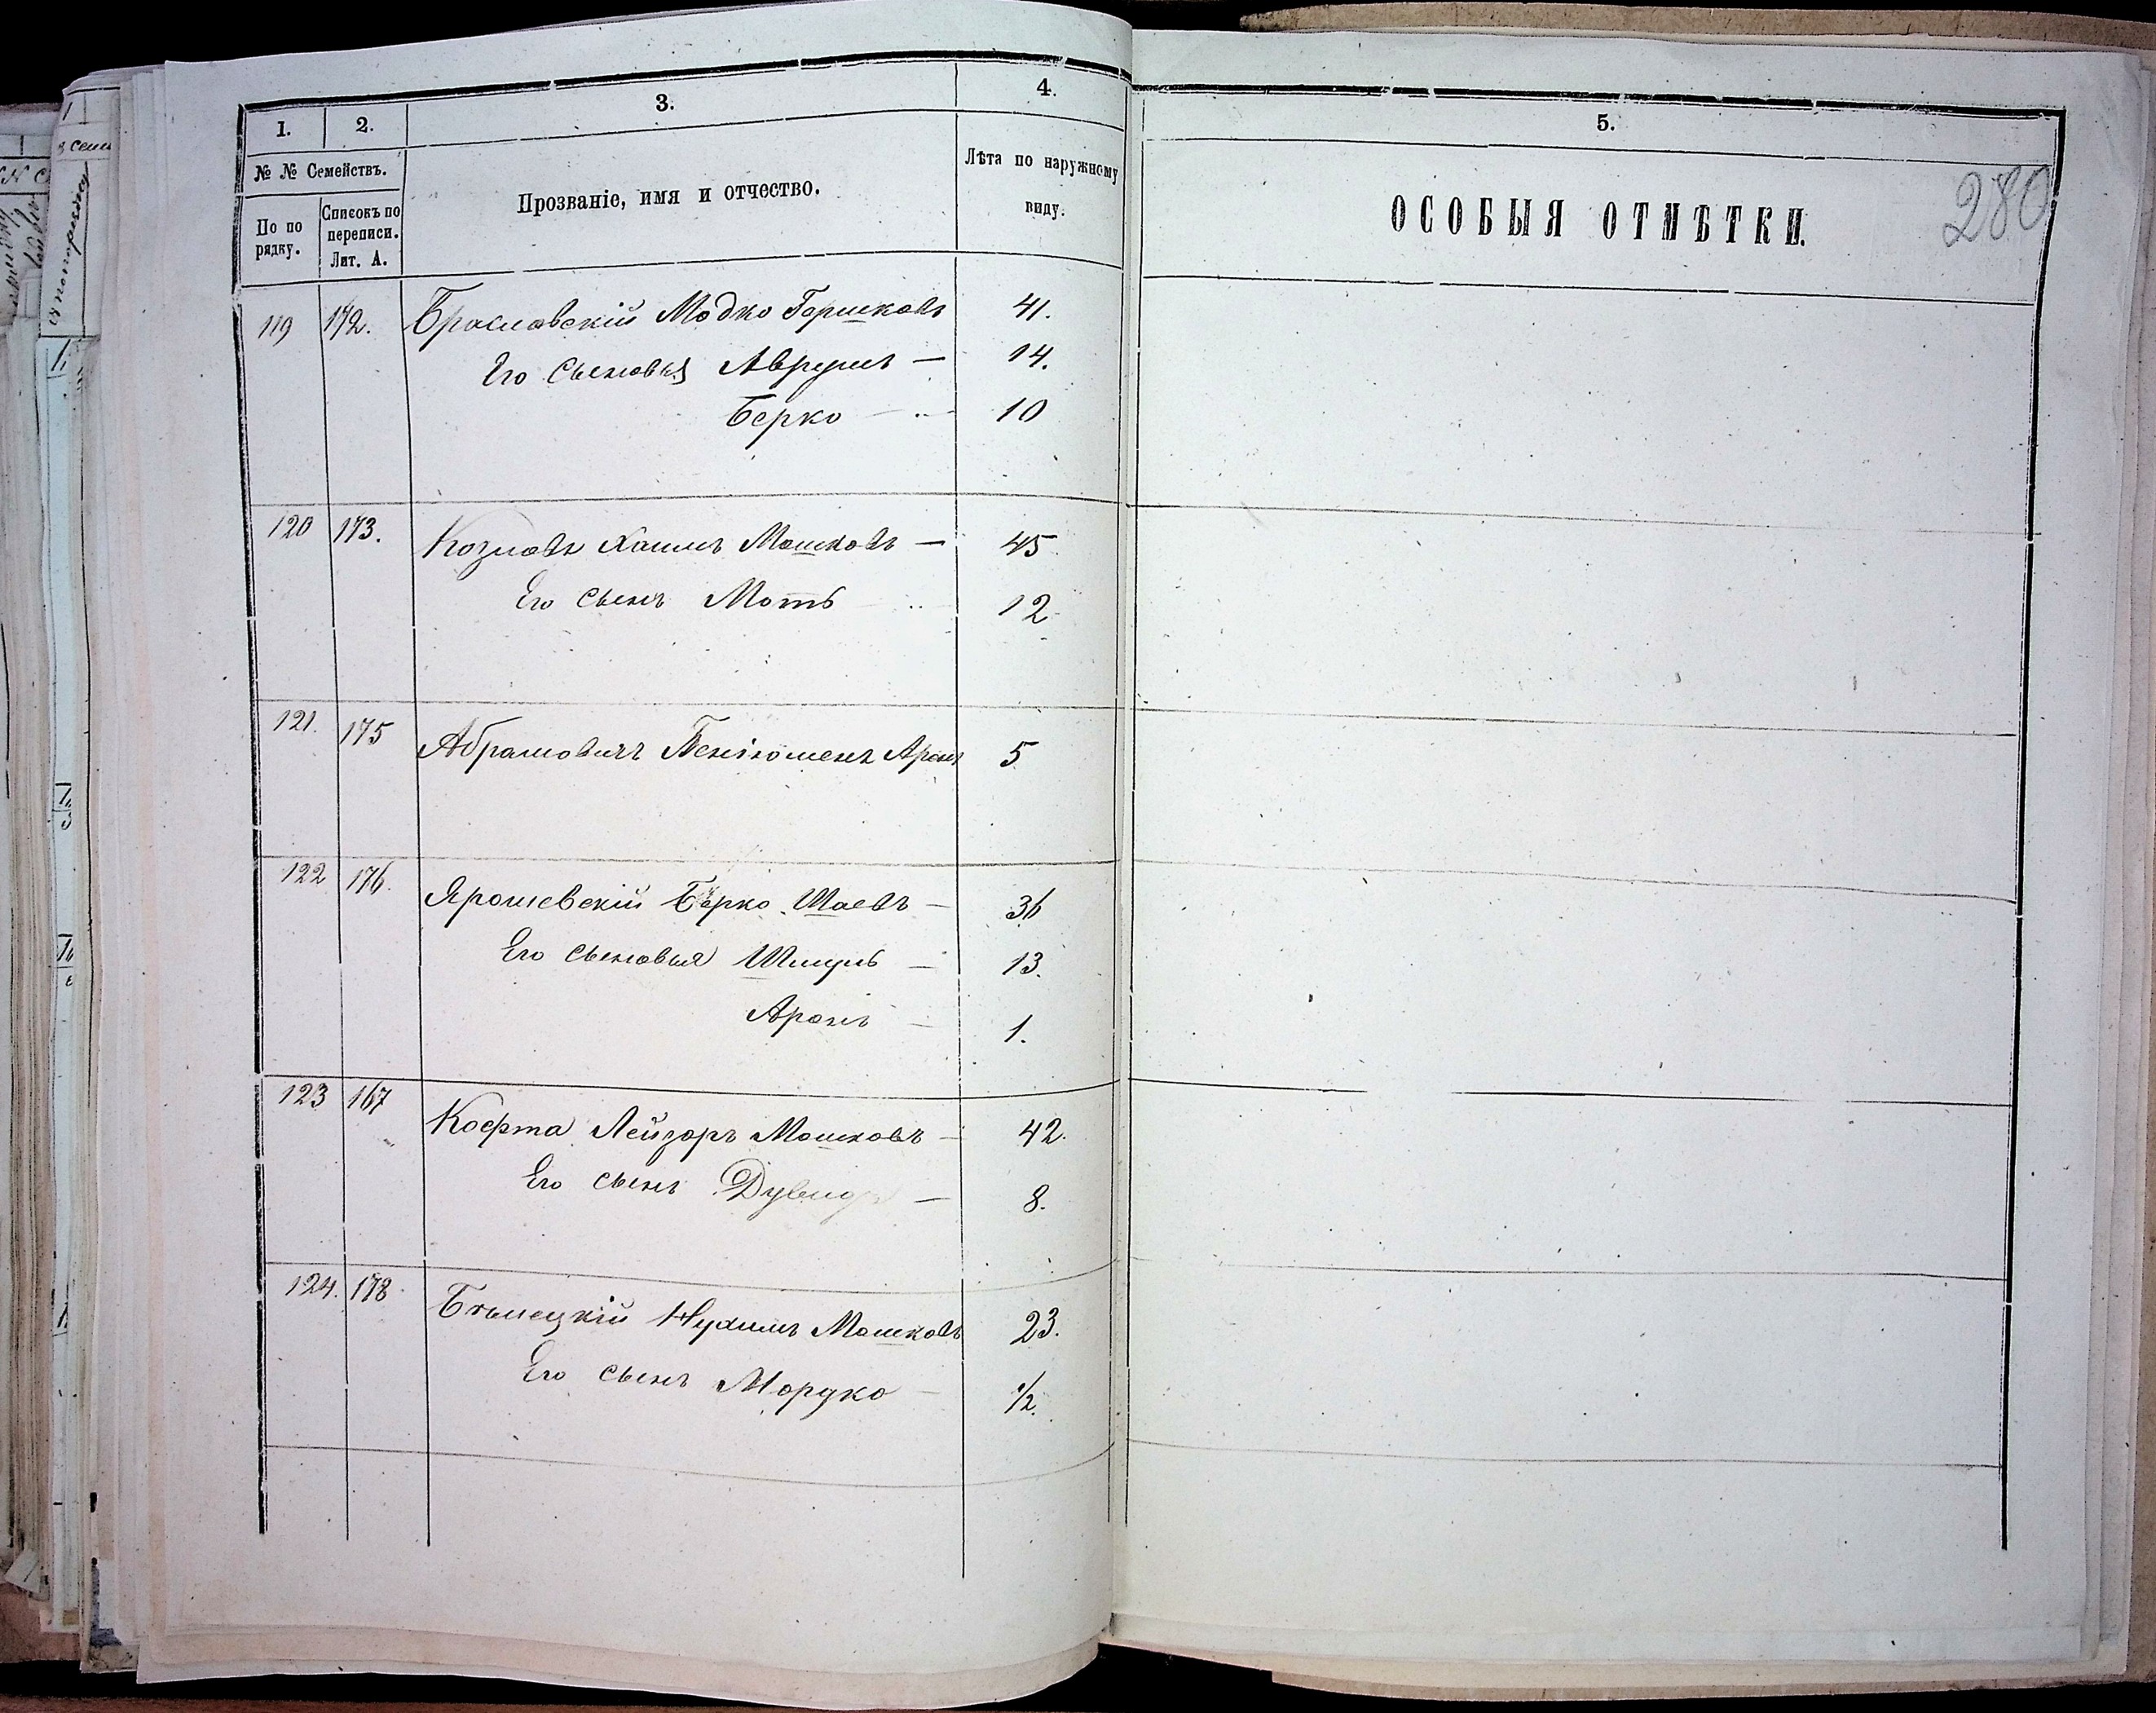 1.
2.
3.
4.
5.
№ № Семействъ.
По по рядку.
Списокъ по переписи. Лит. А.
Прозваніе, имя и отчество.
Лѣта по наружному виду.
ОСОБЫЯ ОТМѢТКИ.
280
119 172. Браславскій Модко Гершковъ 41.
Его сыновья Аврумъ — 14.
Берко — 10
120 173. Козловъ Хаимъ Мошковъ — 45
Его сынъ Моть 12
121. 175 Абрамовичъ Аронъ 5
122 176. Ярошевскій Берко Шаевъ — 36
Его сыновья Шмуль — 13.
Аронъ — 1.
123 167 Кофта Лейзоръ Мошковъ — 42.
Его сынъ — 8.
124. 178 Бѣлецкій Нухимъ Мошковъ 23.
Его сынъ Мордко — 1/2.